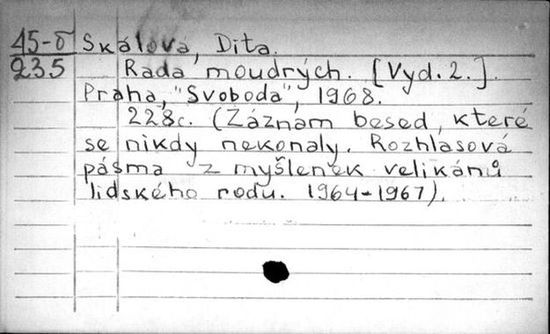 45-δ Skálová, Dita.
235 Rada moudrých. [Vyd. 2.].
Praha, "Svoboda", 1968.
228c. (Záznam besed, které
se nikdy nekonaly. Rozhlasová
pásma z myšlenek velikánů
lidského rodu. 1964-1967).